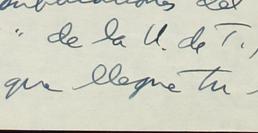 del
" de la U. de T.,
que llegue tu